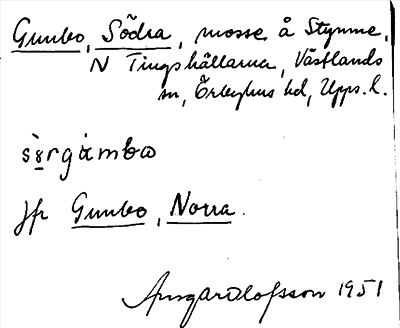 Gumbo, Södra, mosse å Stymne,
N Tingshällarna, Västlands
sn, Örbyhus hd, Upps. l.
sö̀rgámbω
jfr Gumbo, Norra.
Ansgar Olofsson 1951